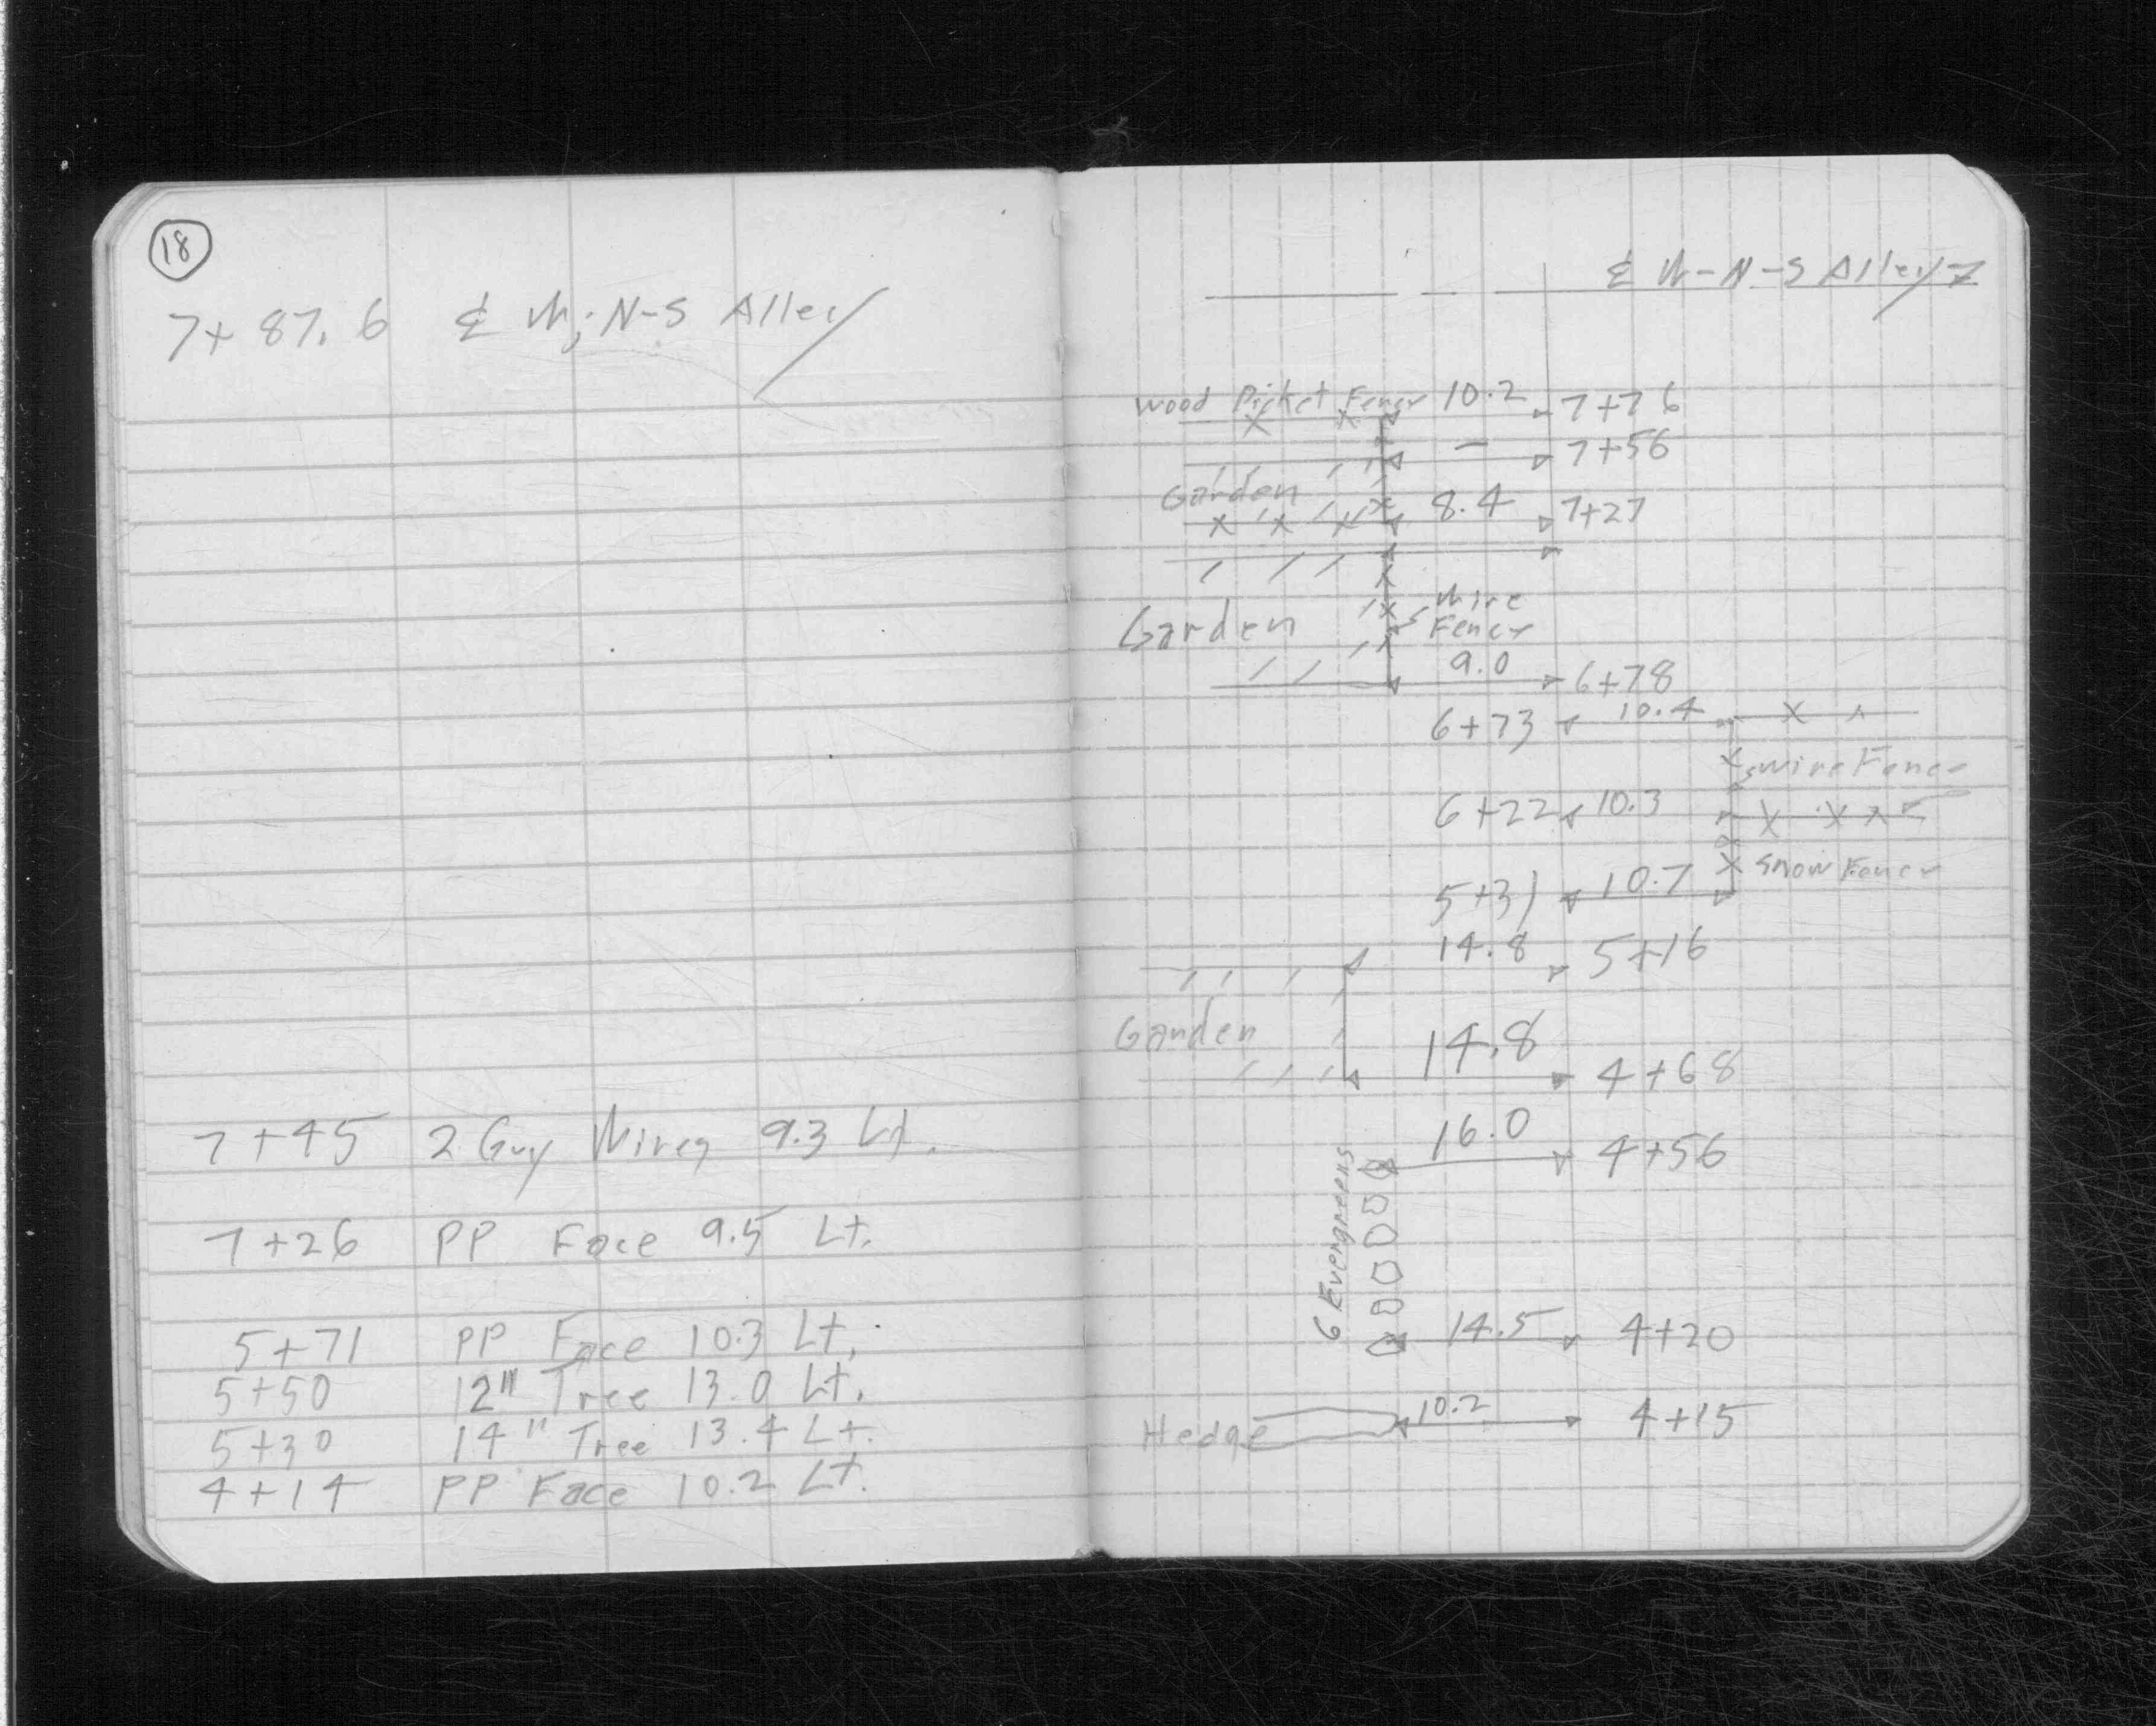 18
7+87.6 ℄ W; N-S Alley
7+45 2 Guy Wires 9.3 Lt.
7+26 PP Face 9.5 Lt.
5+71 PP Face 10.3 Lt.
5+50 12" Tree 13.0 Lt.
5+30 14" Tree 13.4 Lt.
4+14 PP Face 10.2 Lt.
℄ W-N-S Alley
Wood Picket Fence 10.2 7+76
7+56
Garden 8.4 7+27
Wire
Garden Fence
9.0 6+78
6+73 10.4
Wire Fence
6+22 10.3
Snow Fence
5+31 10.7
14.8 5+16
Garden
14.8 4+68
16.0 4+56
6 Evergreens
14.5 4+20
Hedge 10.2 4+15